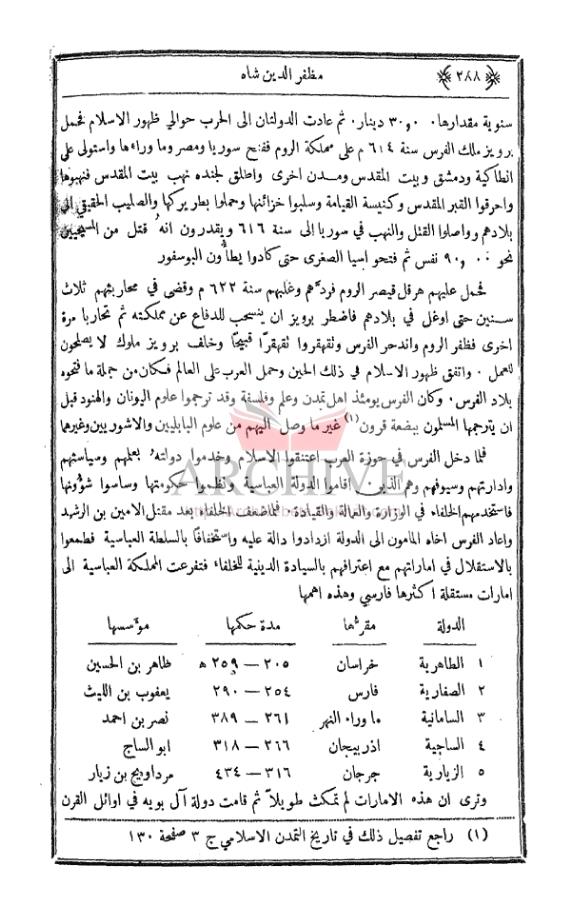 ﴿ ٢٨٨ ﴾ مظفر الدين شاه
سنوية مقدارها ٣٠٬٠٠٠ دينار. ثم عادت الدولتان الى الحرب حوالي ظهور الاسلام فحمل
برويز ملك الفرس سنة ٦١٤ م على مملكة الروم ففتح سوريا ومصر وما وراءها واستولى على
انطاكية ودمشق وبيت المقدس ومدن اخرى واطلق لجنده نهب بيت المقدس فنهبوها
واحرقوا القبر المقدس وكنيسة القيامة وسلبوا خزائنها وحملوا بطريركها والصليب الحقيقي الى
بلادهم وواصلوا القتل والنهب في سوريا الى سنة ٦١٦ ويقدرون انهُ قتل من المسيحيين
نحو ٩٠٬٠٠٠ نفس ثم فتحوا اسيا الصغرى حتى كادوا يطأُون البوسفور
فحمل عليهم هرقل قيصر الروم فردَّهم وغلبهم سنة ٦٢٢ م وقضى في محاربتهم ثلاث
سنين حتى اوغل في بلادهم فاضطر برويز ان ينسحب للدفاع عن مملكته ثم تحاربا مرة
اخرى فظفر الروم واندحر الفرس وتقهقروا تقهقرًا قبيحًا وخلف برويز ملوك لا يصلحون
للعمل. واتفق ظهور الاسلام في ذلك الحين وحمل العرب على العالم فكان من جملة ما فتحوه
بلاد الفرس. وكان الفرس يومئذ اهل تمدن وعلم وفلسفة وقد ترجموا علوم اليونان والهنود قبل
ان يترجمها المسلمون ببضعة قرون (١) غير ما وصل اليهم من علوم البابليين والاشوريين وغيرها
فلما دخل الفرس في حوزة العرب اعتنقوا الاسلام وخدموا دولتهُ بعلمهم وسياستهم
وادارتهم وسيوفهم وهم الذين اقاموا الدولة العباسية ونظموا حكومتها وساسوا شؤُونها
فاستخدمهم الخلفاء في الوزارة والعمالة والقيادة. فلما ضعف الخلفاء بعد مقتل الامين بن الرشيد
واعاد الفرس اخاه المامون الى الدولة ازدادوا دالة عليه واستخفافًا بالسلطة العباسية فطمعوا
بالاستقلال في اماراتهم مع اعترافهم بالسيادة الدينية للخلفاء فتفرعت المملكة العباسية الى
امارات مستقلة اكثرها فارسي وهذه اهمها
الدولة مقرُّها مدة حكمها موْسسها
١ الطاهرية خراسان ٢٠٥ — ٢٥٩ ه طاهر بن الحسين
٢ الصفارية فارس ٢٥٤ — ٢٩٠ يعقوب بن الليث
٣ السامانية ما وراء النهر ٢٦١ — ٣٨٩ نصر بن احمد
٤ الساجية اذربيجان ٢٦٦ — ٣١٨ ابو الساج
٥ الزيارية جرجان ٣١٦ — ٤٣٤ مرداويج بن زيار
وترى ان هذه الامارات لم تمكث طويلاً ثم قامت دولة آل بويه في اوائل القرن
(١) راجع تفصيل ذلك في تاريخ التمدن الاسلامي ج ٣ صفحة ١٣٠
ARCHIVE